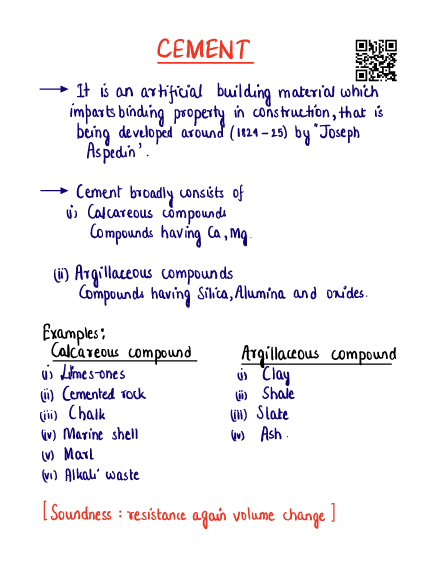 CEMENT
→ It is an artificial building material which
imparts binding property in construction, that is
being developed around (1824-25) by "Joseph
Aspedin'.
→ Cement broadly consists of
(i) Calcareous compounds
Compounds having Ca, Mg.
(ii) Argillaceous compounds
Compounds having Silica, Alumina and oxides.
Examples:
Calcareous compound
(i) Limes-ones
(ii) Cemented rock
(iii) Chalk
(iv) Marine shell
(v) Marl
(vi) Alkali' waste
Argillaceous compound
(i) Clay
(ii) Shale
(iii) Slate
(iv) Ash.
[Soundness : resistance again volume change]